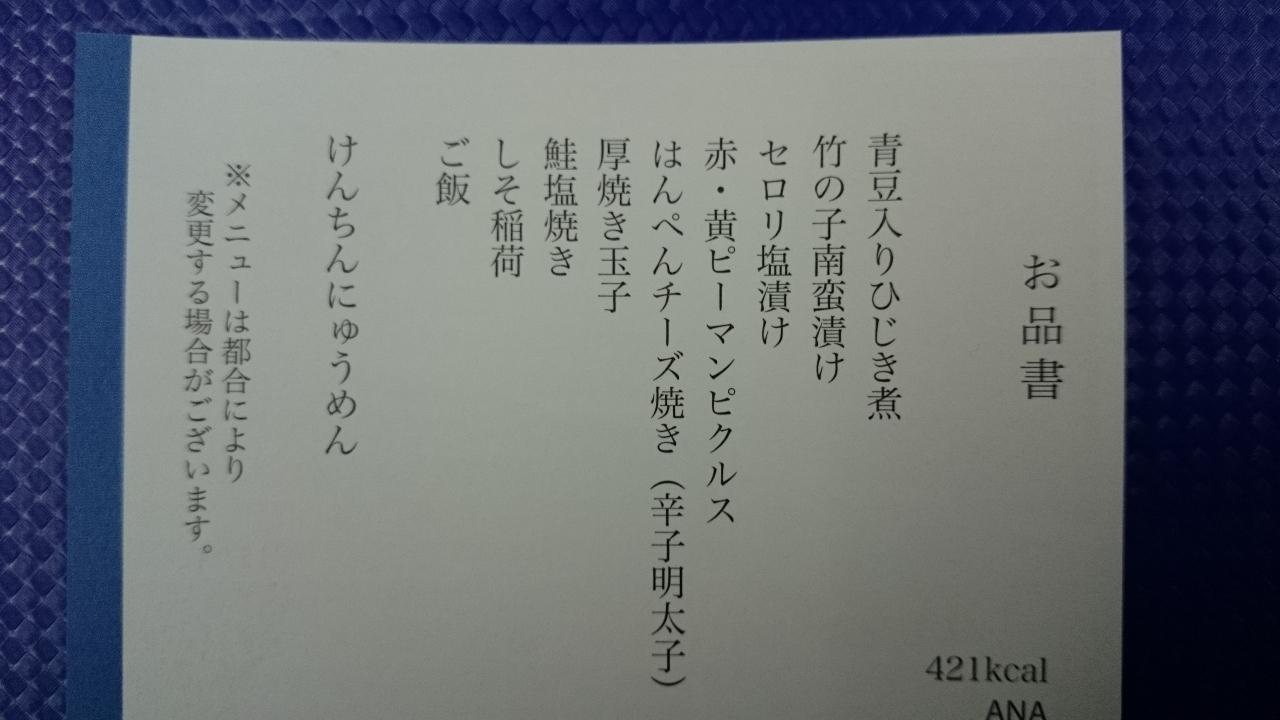 お品書
421kcal
ANA
青豆入りひじき煮
竹の子南蛮漬け
セロリ塩漬け
赤・黄ピーマンピクルス
はんぺんチーズ焼き（辛子明太子）
厚焼き玉子
鮭塩焼き
しそ稲荷
ご飯
けんちんにゅうめん
※メニューは都合により
変更する場合がございます。